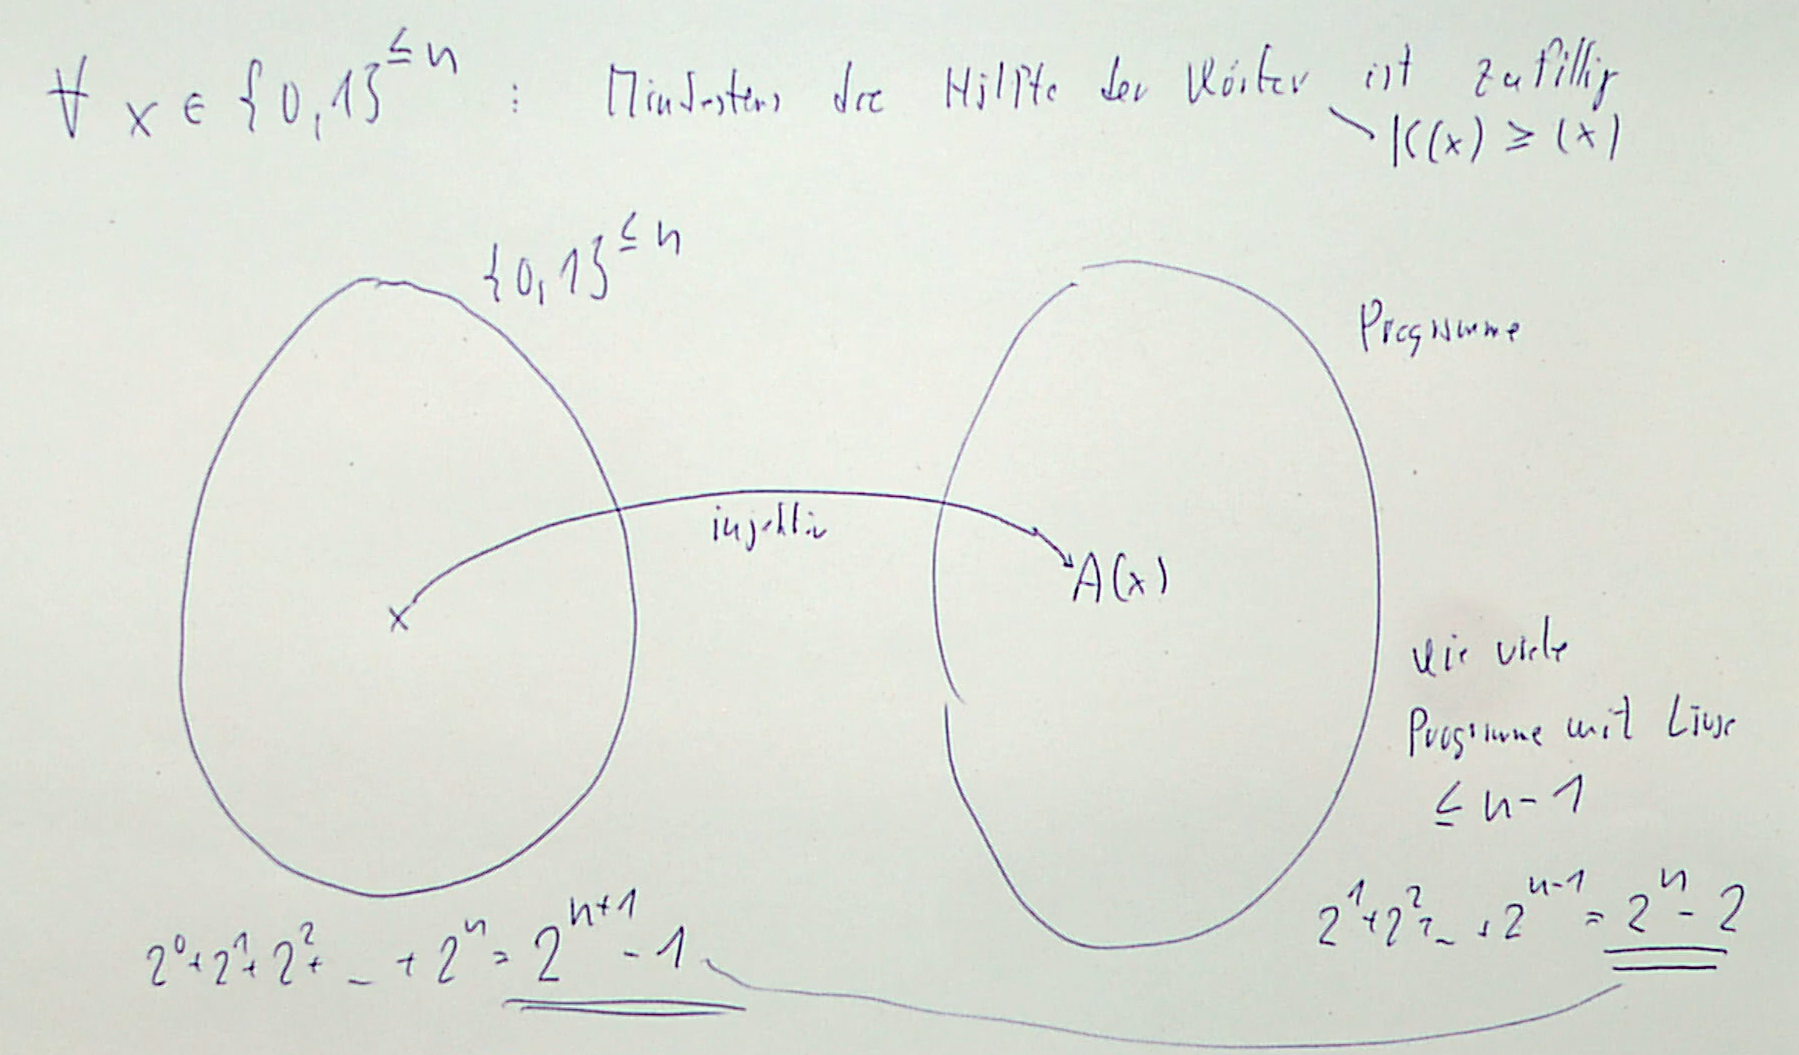 ∀ x ∈ {0,1}^≤n : Mindestens die Hälfte der Wörter ist zufällig
K(x) ≥ |x|
{0,1}^≤n
Programme
injektiv
x
A(x)
Wie viele
Programme mit Länge
≤ n-1
2^0+2^1+2^2+ ... + 2^n = 2^(n+1) - 1
2^1+2^2+ ... + 2^(n-1) = 2^n - 2